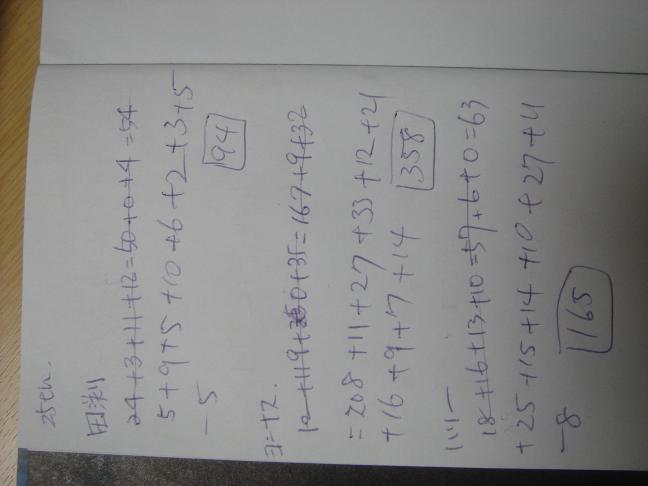 25th.
24+3+11+12=50+0+4=54
5+9+5+10+6+2+3+5
-5
94
12+119+0+35=167+9+32
=208+11+27+33+12+21
+16+9+7+14
358
18+16+13+10=57+6+0=63
+25+15+14+10+27+11
-8
165